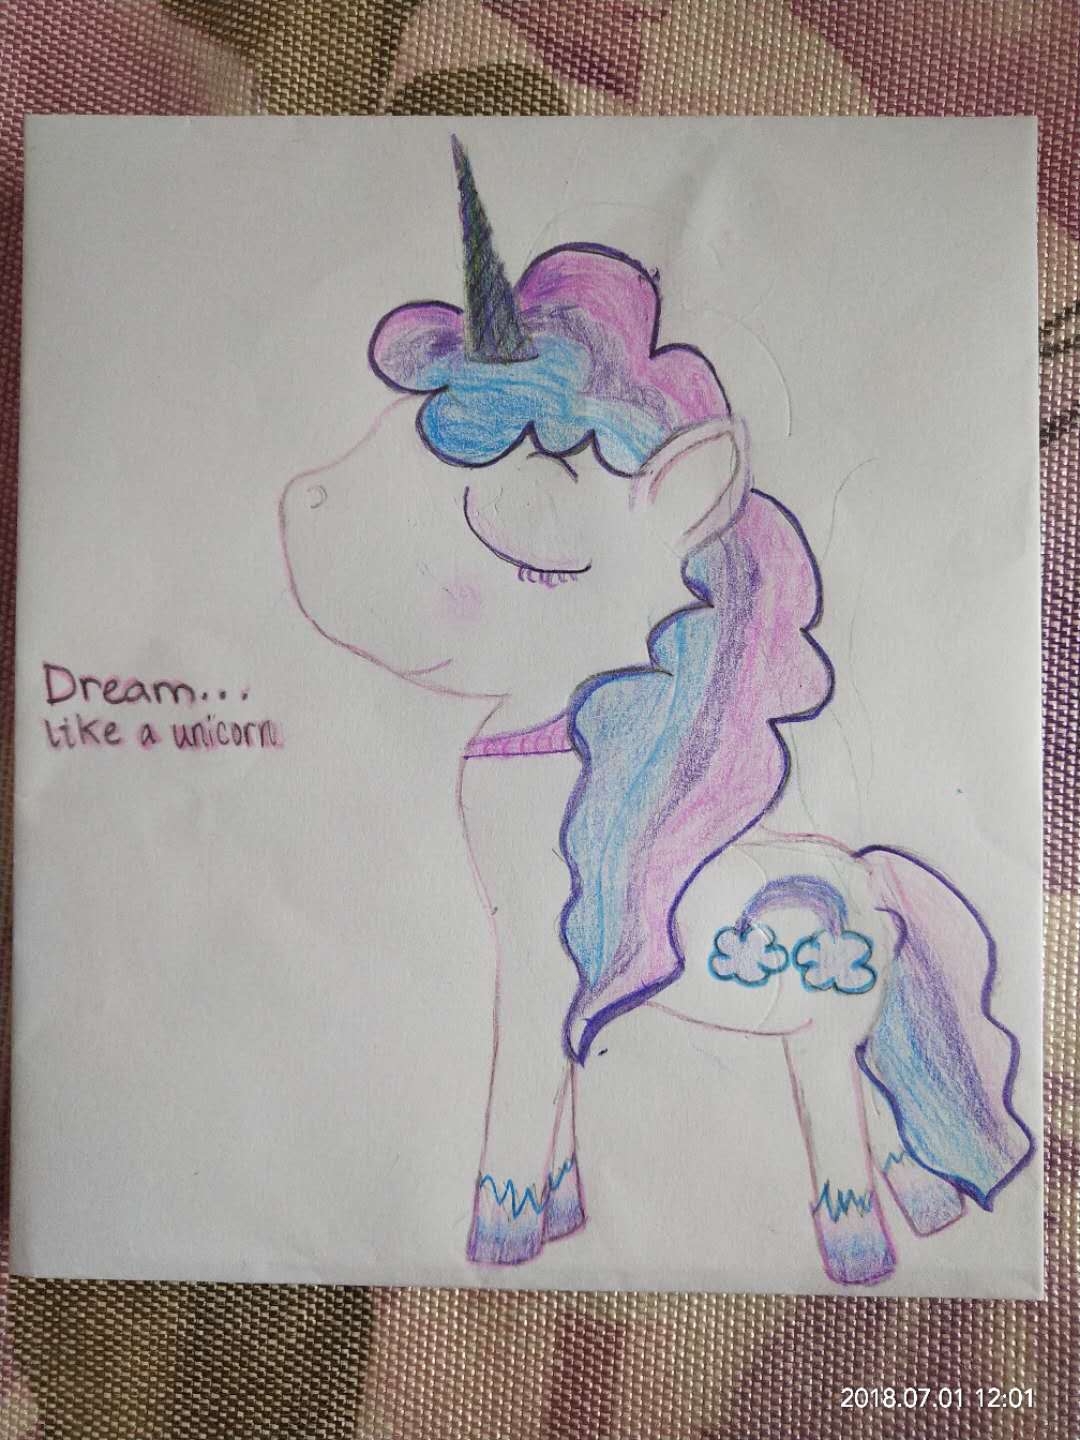 Dream...
like a unicorn
2018.07.01 12:01